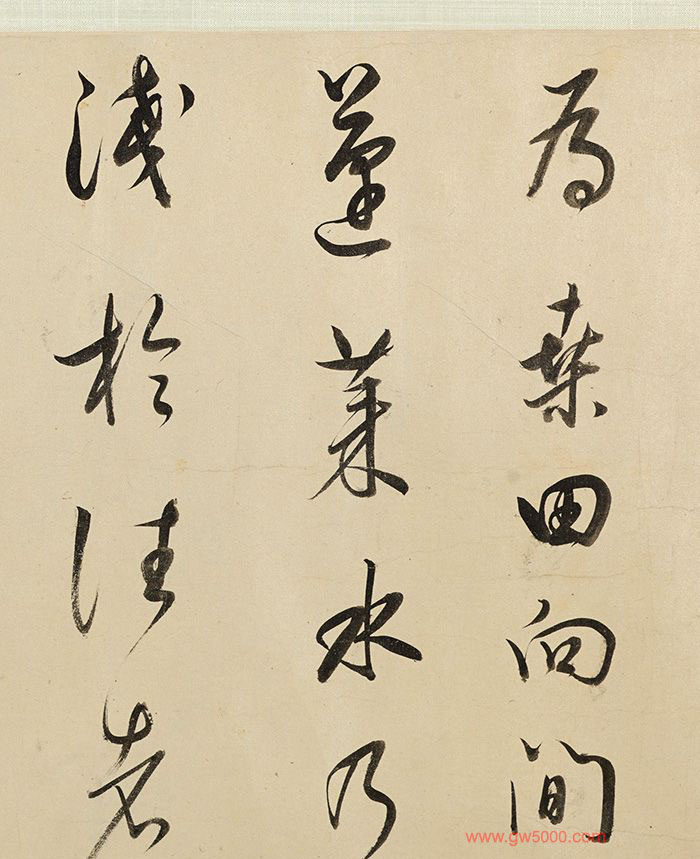 為桑田向間
蓬萊水乃
淺於往者
www.gw5000.com